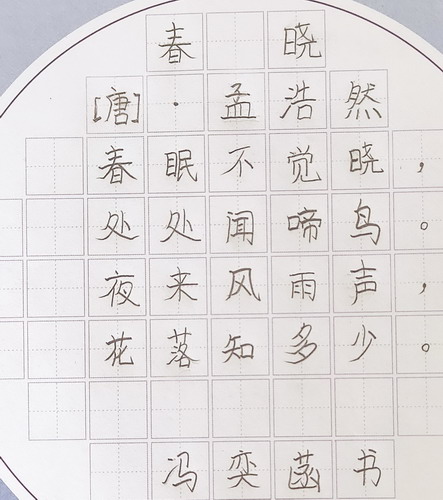 春 晓
[唐]·孟浩然
春眠不觉晓，
处处闻啼鸟。
夜来风雨声，
花落知多少。
冯奕菡书